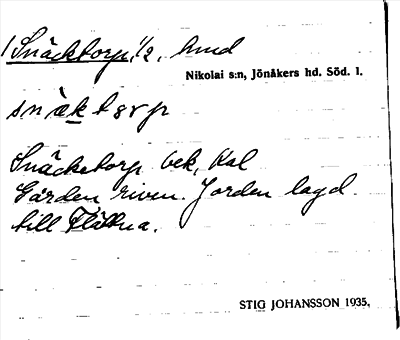 1 Snäcktorp, 1/2, hmd
Nikolai s:n, Jönåkers hd. Söd. l.
snäktsrp
Snäcketorp bek, Kal
Gården riven. Jorden lagd
till Flättna.
STIG JOHANSSON 1935.